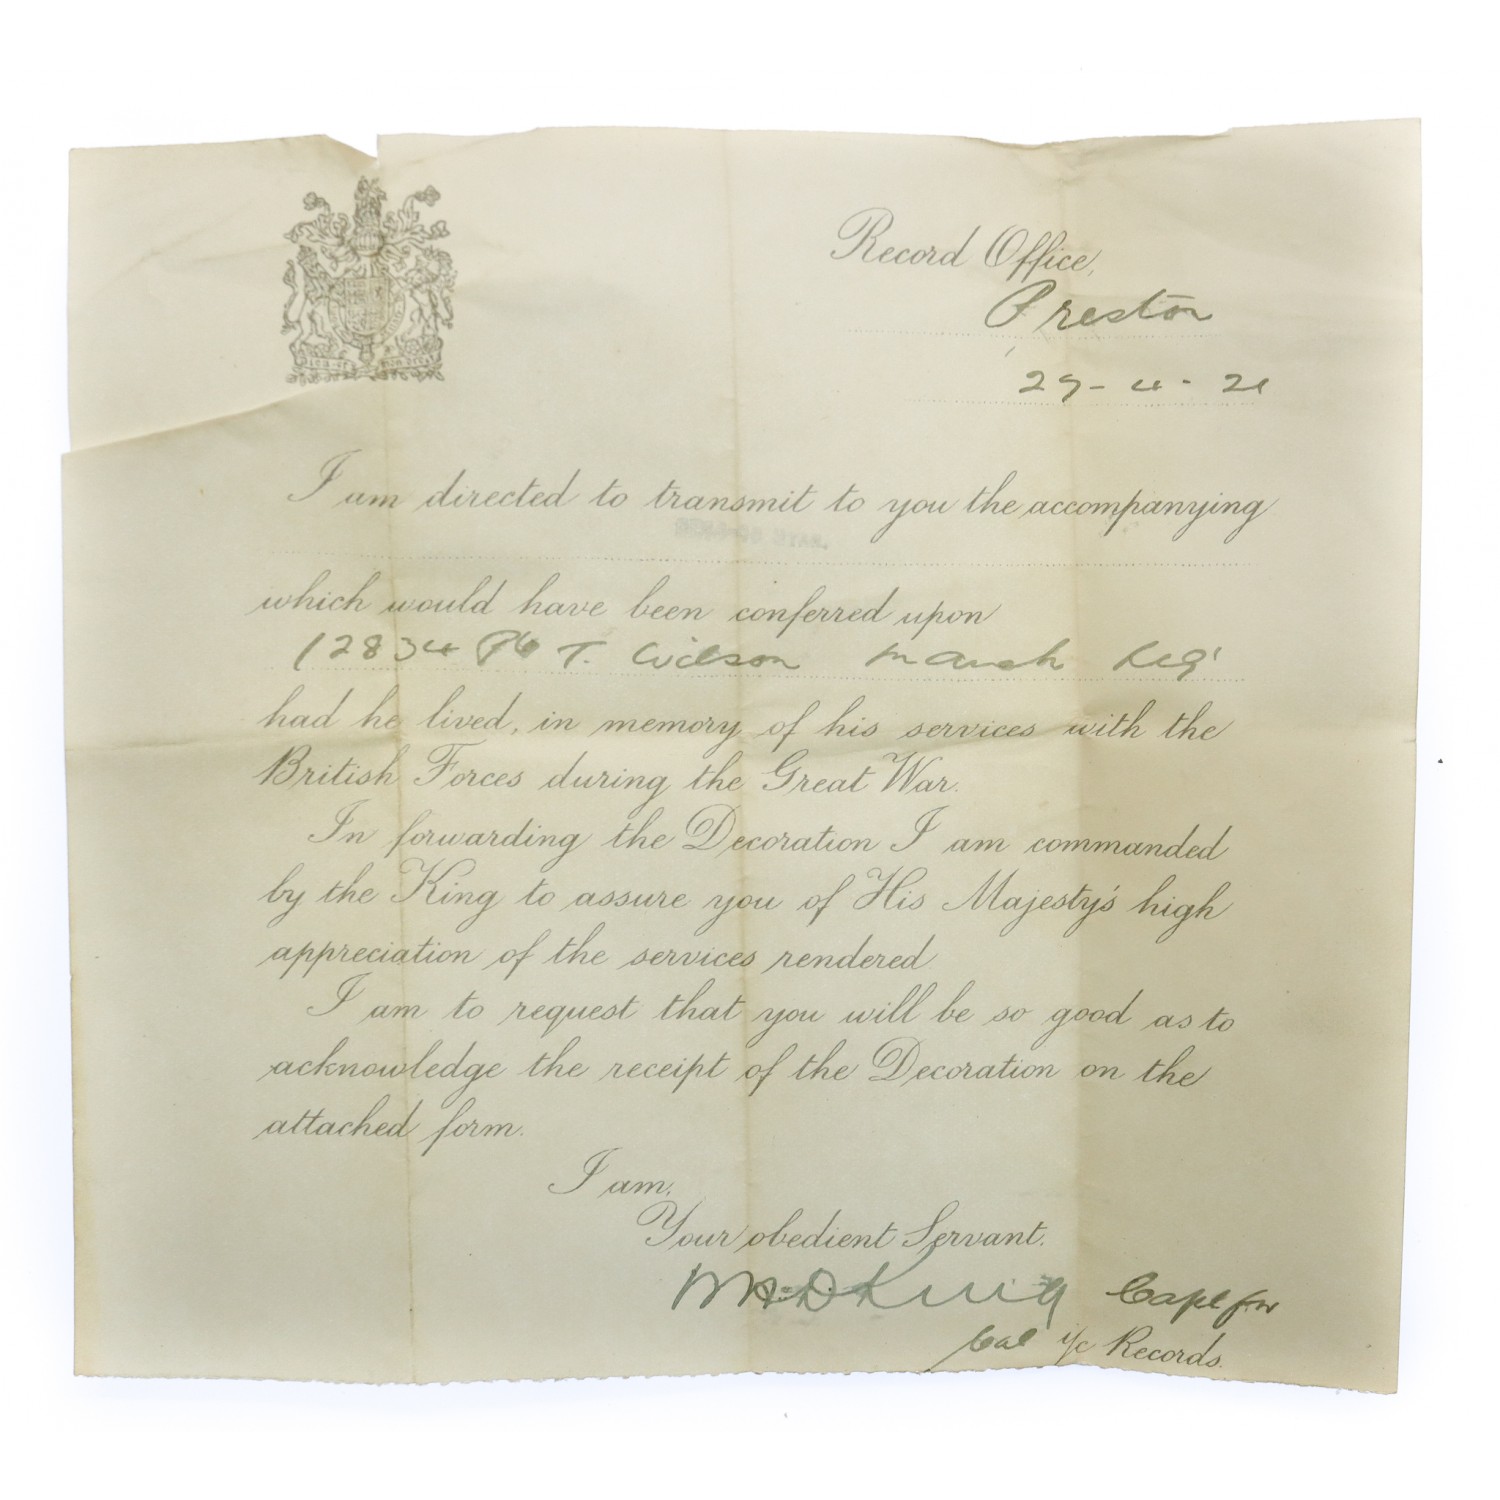 Record Office,
Preston
29-4-21
I am directed to transmit to you the accompanying
which would have been conferred upon
12834 Pte T. Wilson Manch Reg'
had he lived, in memory of his services with the
British Forces during the Great War.
In forwarding the Decoration I am commanded
by the King to assure you of His Majesty's high
appreciation of the services rendered
I am to request that you will be so good as to
acknowledge the receipt of the Decoration on the
attached form.
I am,
Your obedient Servant.
King Capt for
Col i/c Records.